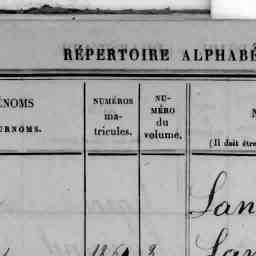 RÉPERTOIRE ALPHABÉ
ÉNOMS
URNOMS.
NUMÉROS
ma-
tricules.
NU-
MÉRO
du
volume.
N
(Il doit être
Lan
Lan